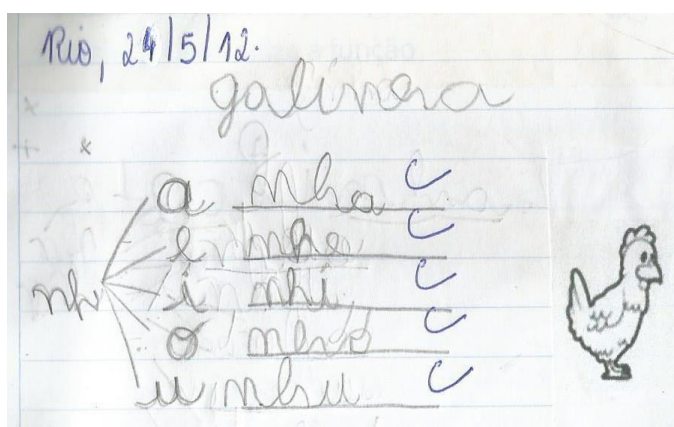 Rio, 24/5/12.
galinha
a nha
e nhe
nh i nhi
o nho
u nhu